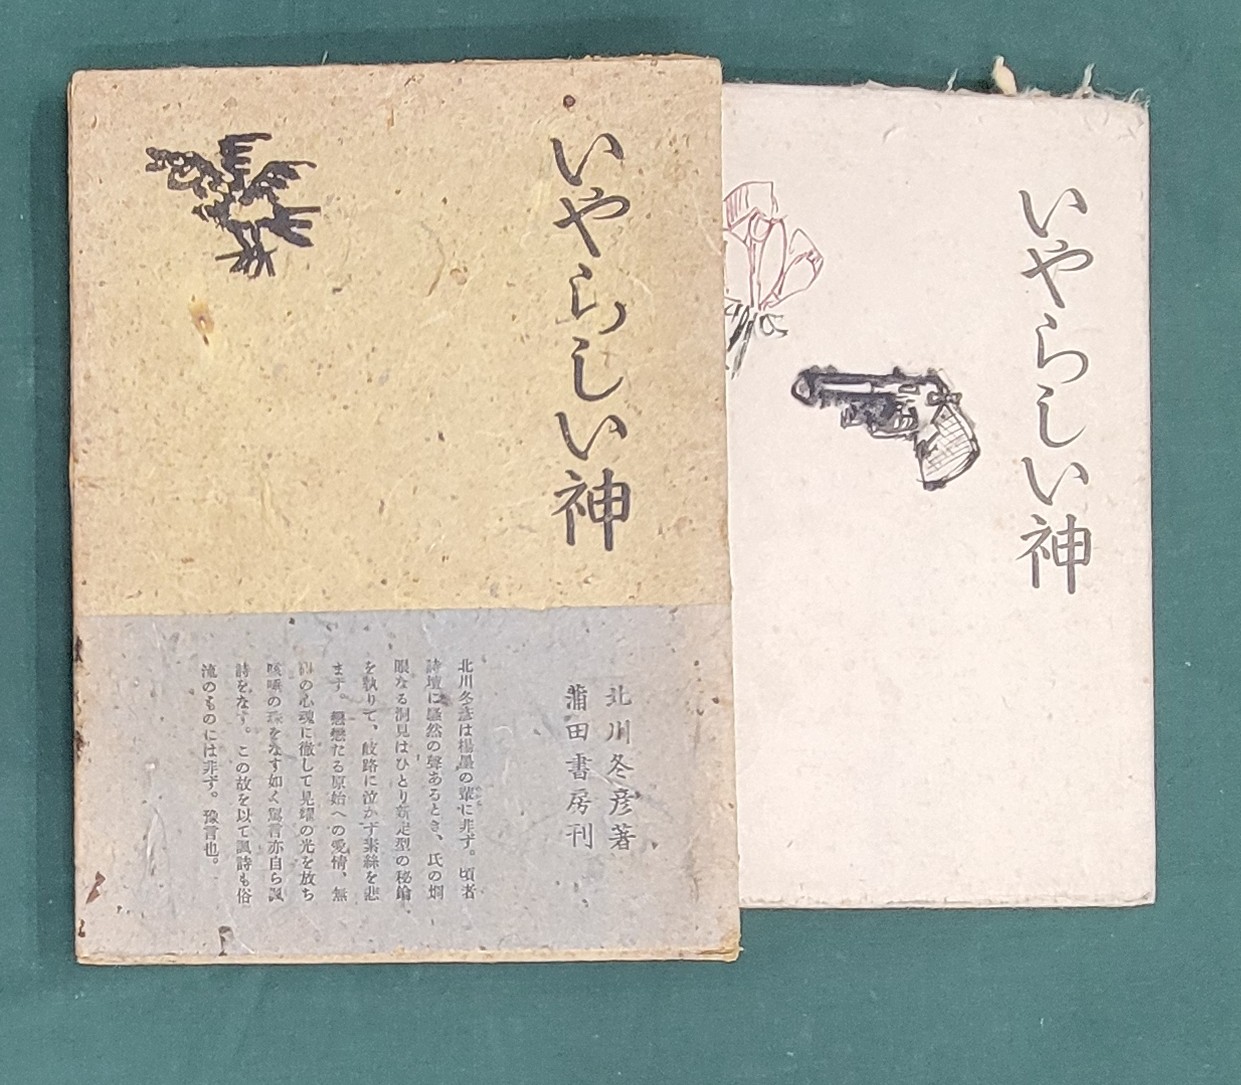 いやらしい神
北川冬彦著
蒲田書房刊
北川冬彦は楊墨の輩に非ず。頃者
詩壇に騒然の聲あるとき、氏の烱
眼なる洞見はひとり新定型の秘鑰
を執りて、岐路に泣かず素絲を悲
ます。戀々たる原始への愛情、無
の心魂に徹して見燿の光を放ち
の をなす如く寓言亦自ら諷
詩をなす。この故を以て諷詩も俗
流のものには非ず。豫言也。
いやらしい神